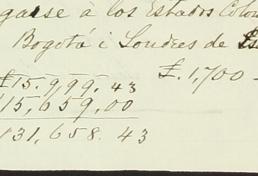 garse à los Estados Colom
Bogotá i Londres de
£15.999.43 £.1,700-
115,659.00
131.658.43